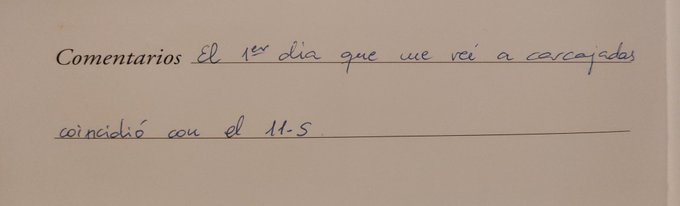 Comentarios El 1er dia que me reí a carcajadas
coincidió con el 11-S